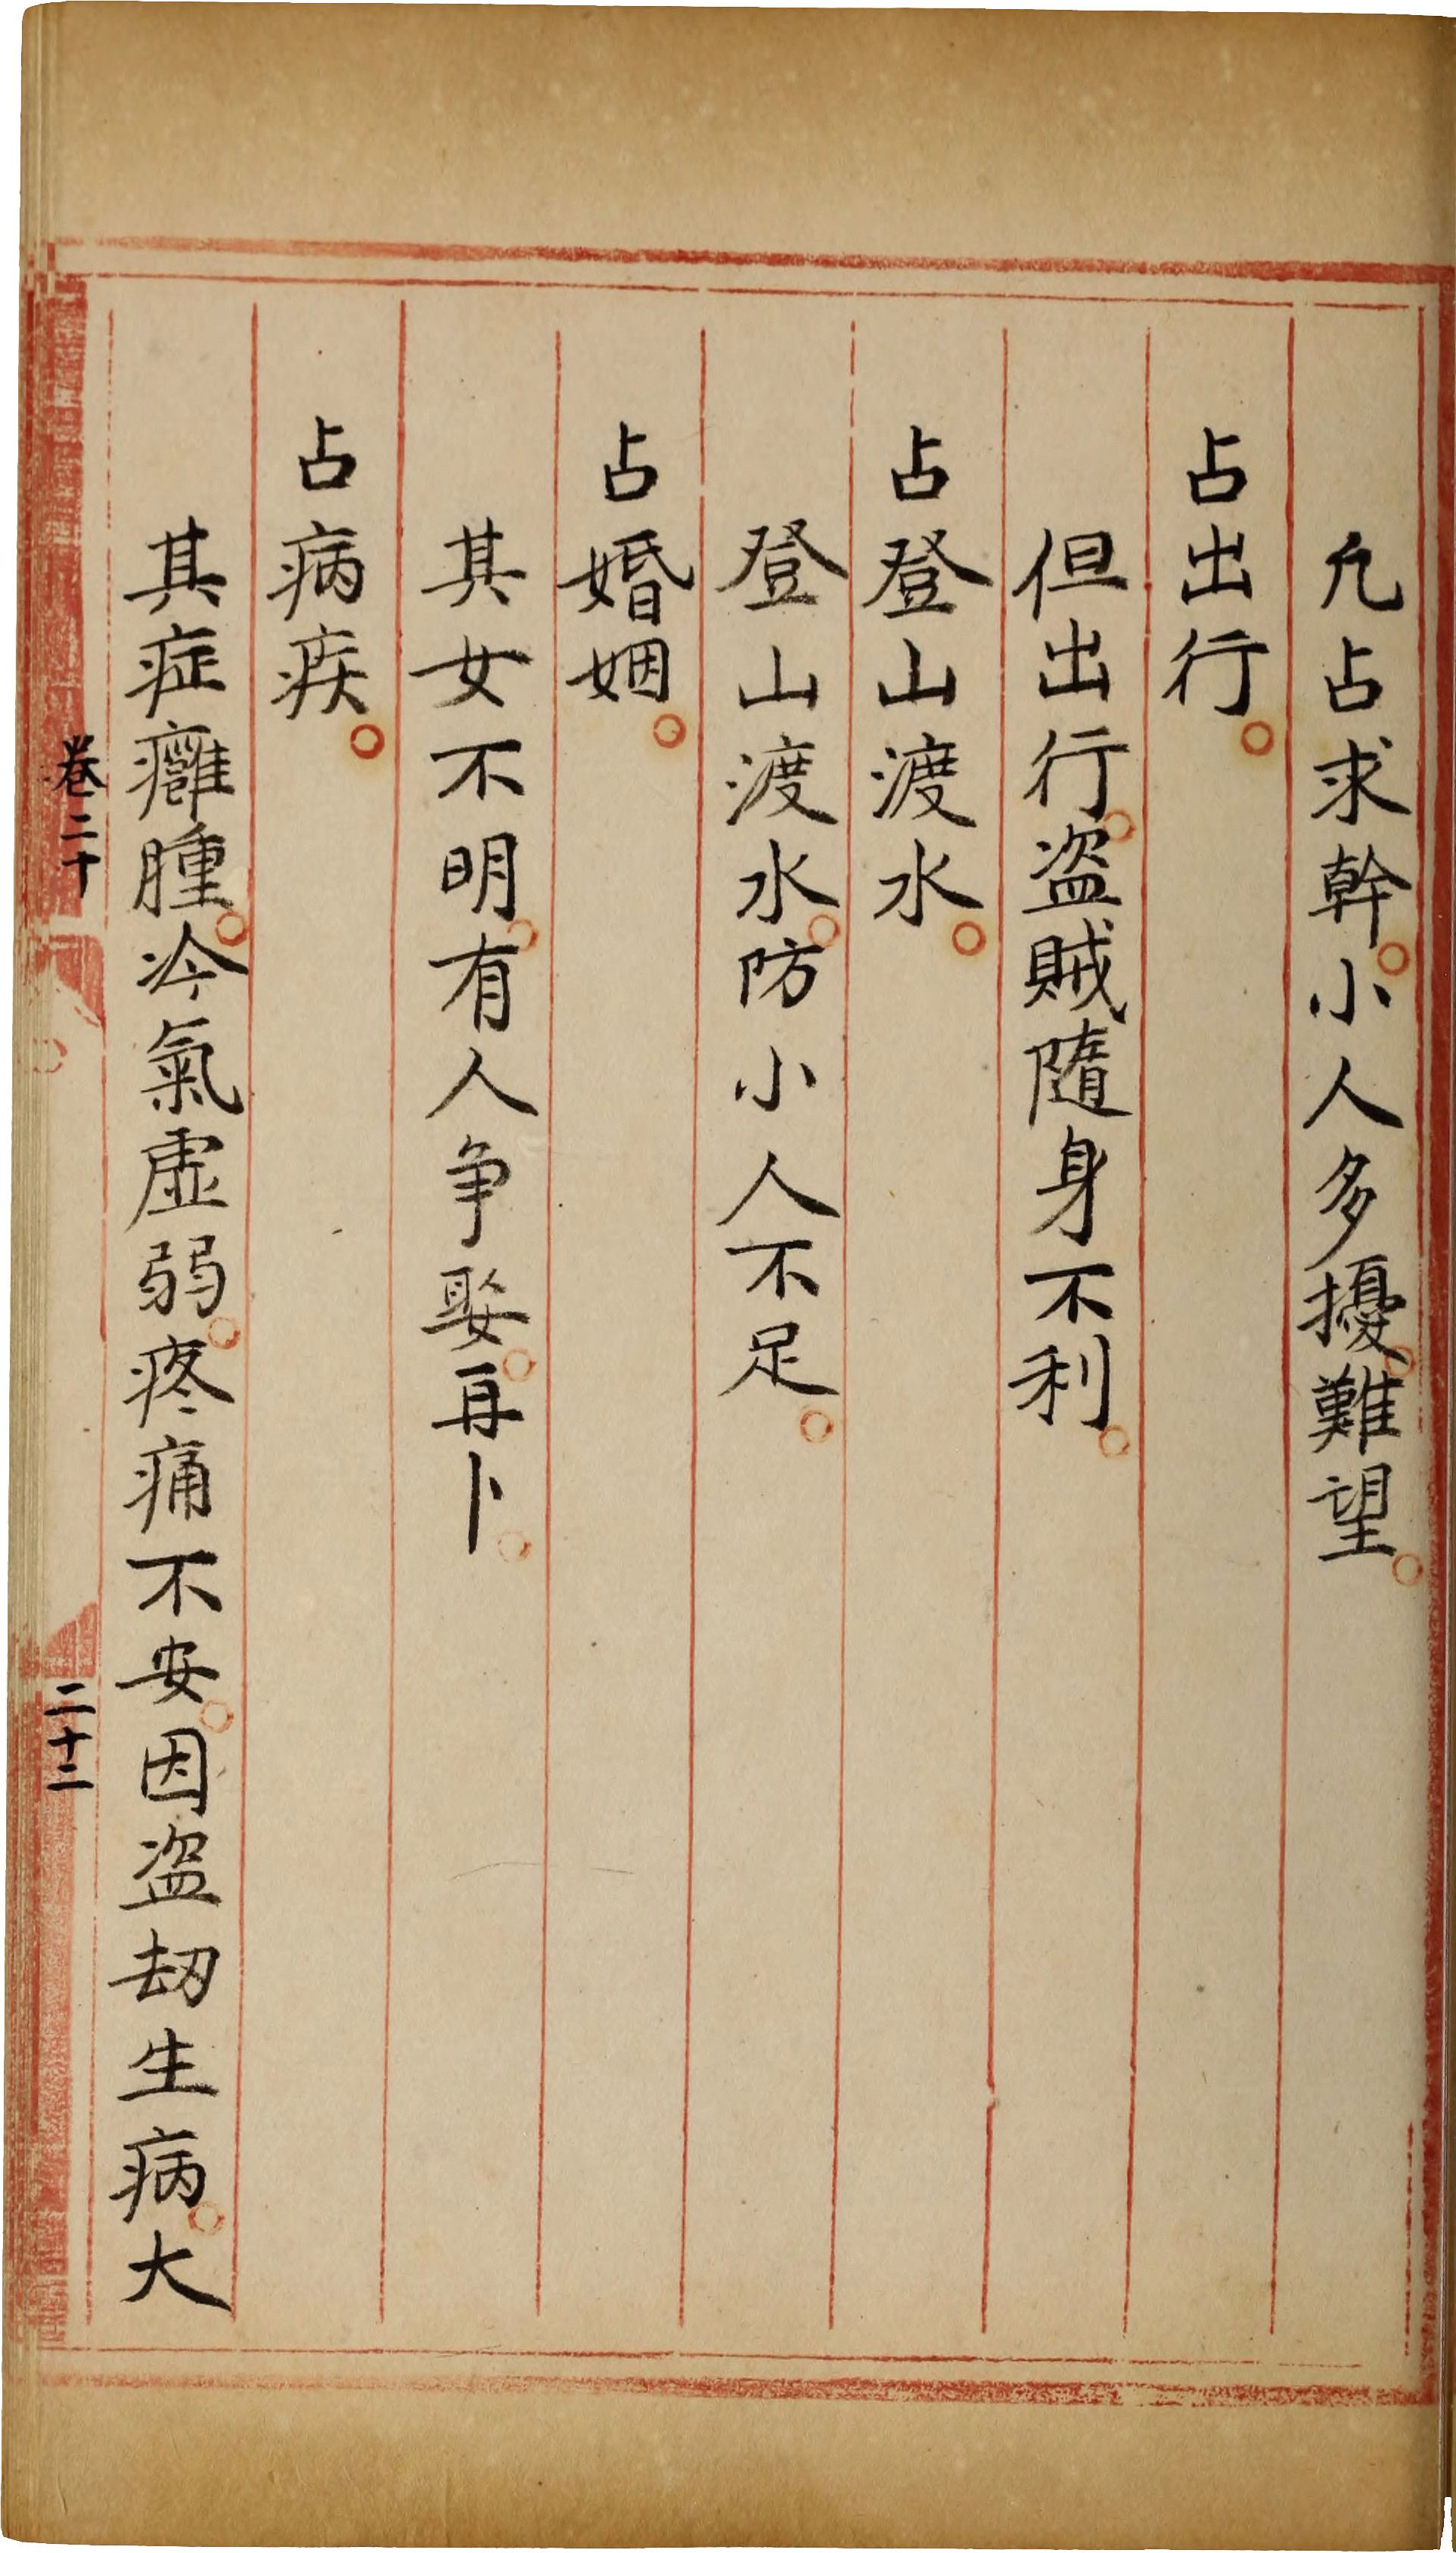 凢占求幹小人多擾難望
占出行
但出行盗賊隨身不利
占登山渡水
登山渡水防小人不足
占婚姻
其女不明有人争娶再卜
占病疾
其症癰腫冷氣虛弱疼痛不安因盗刧生病大
卷二十
二十二